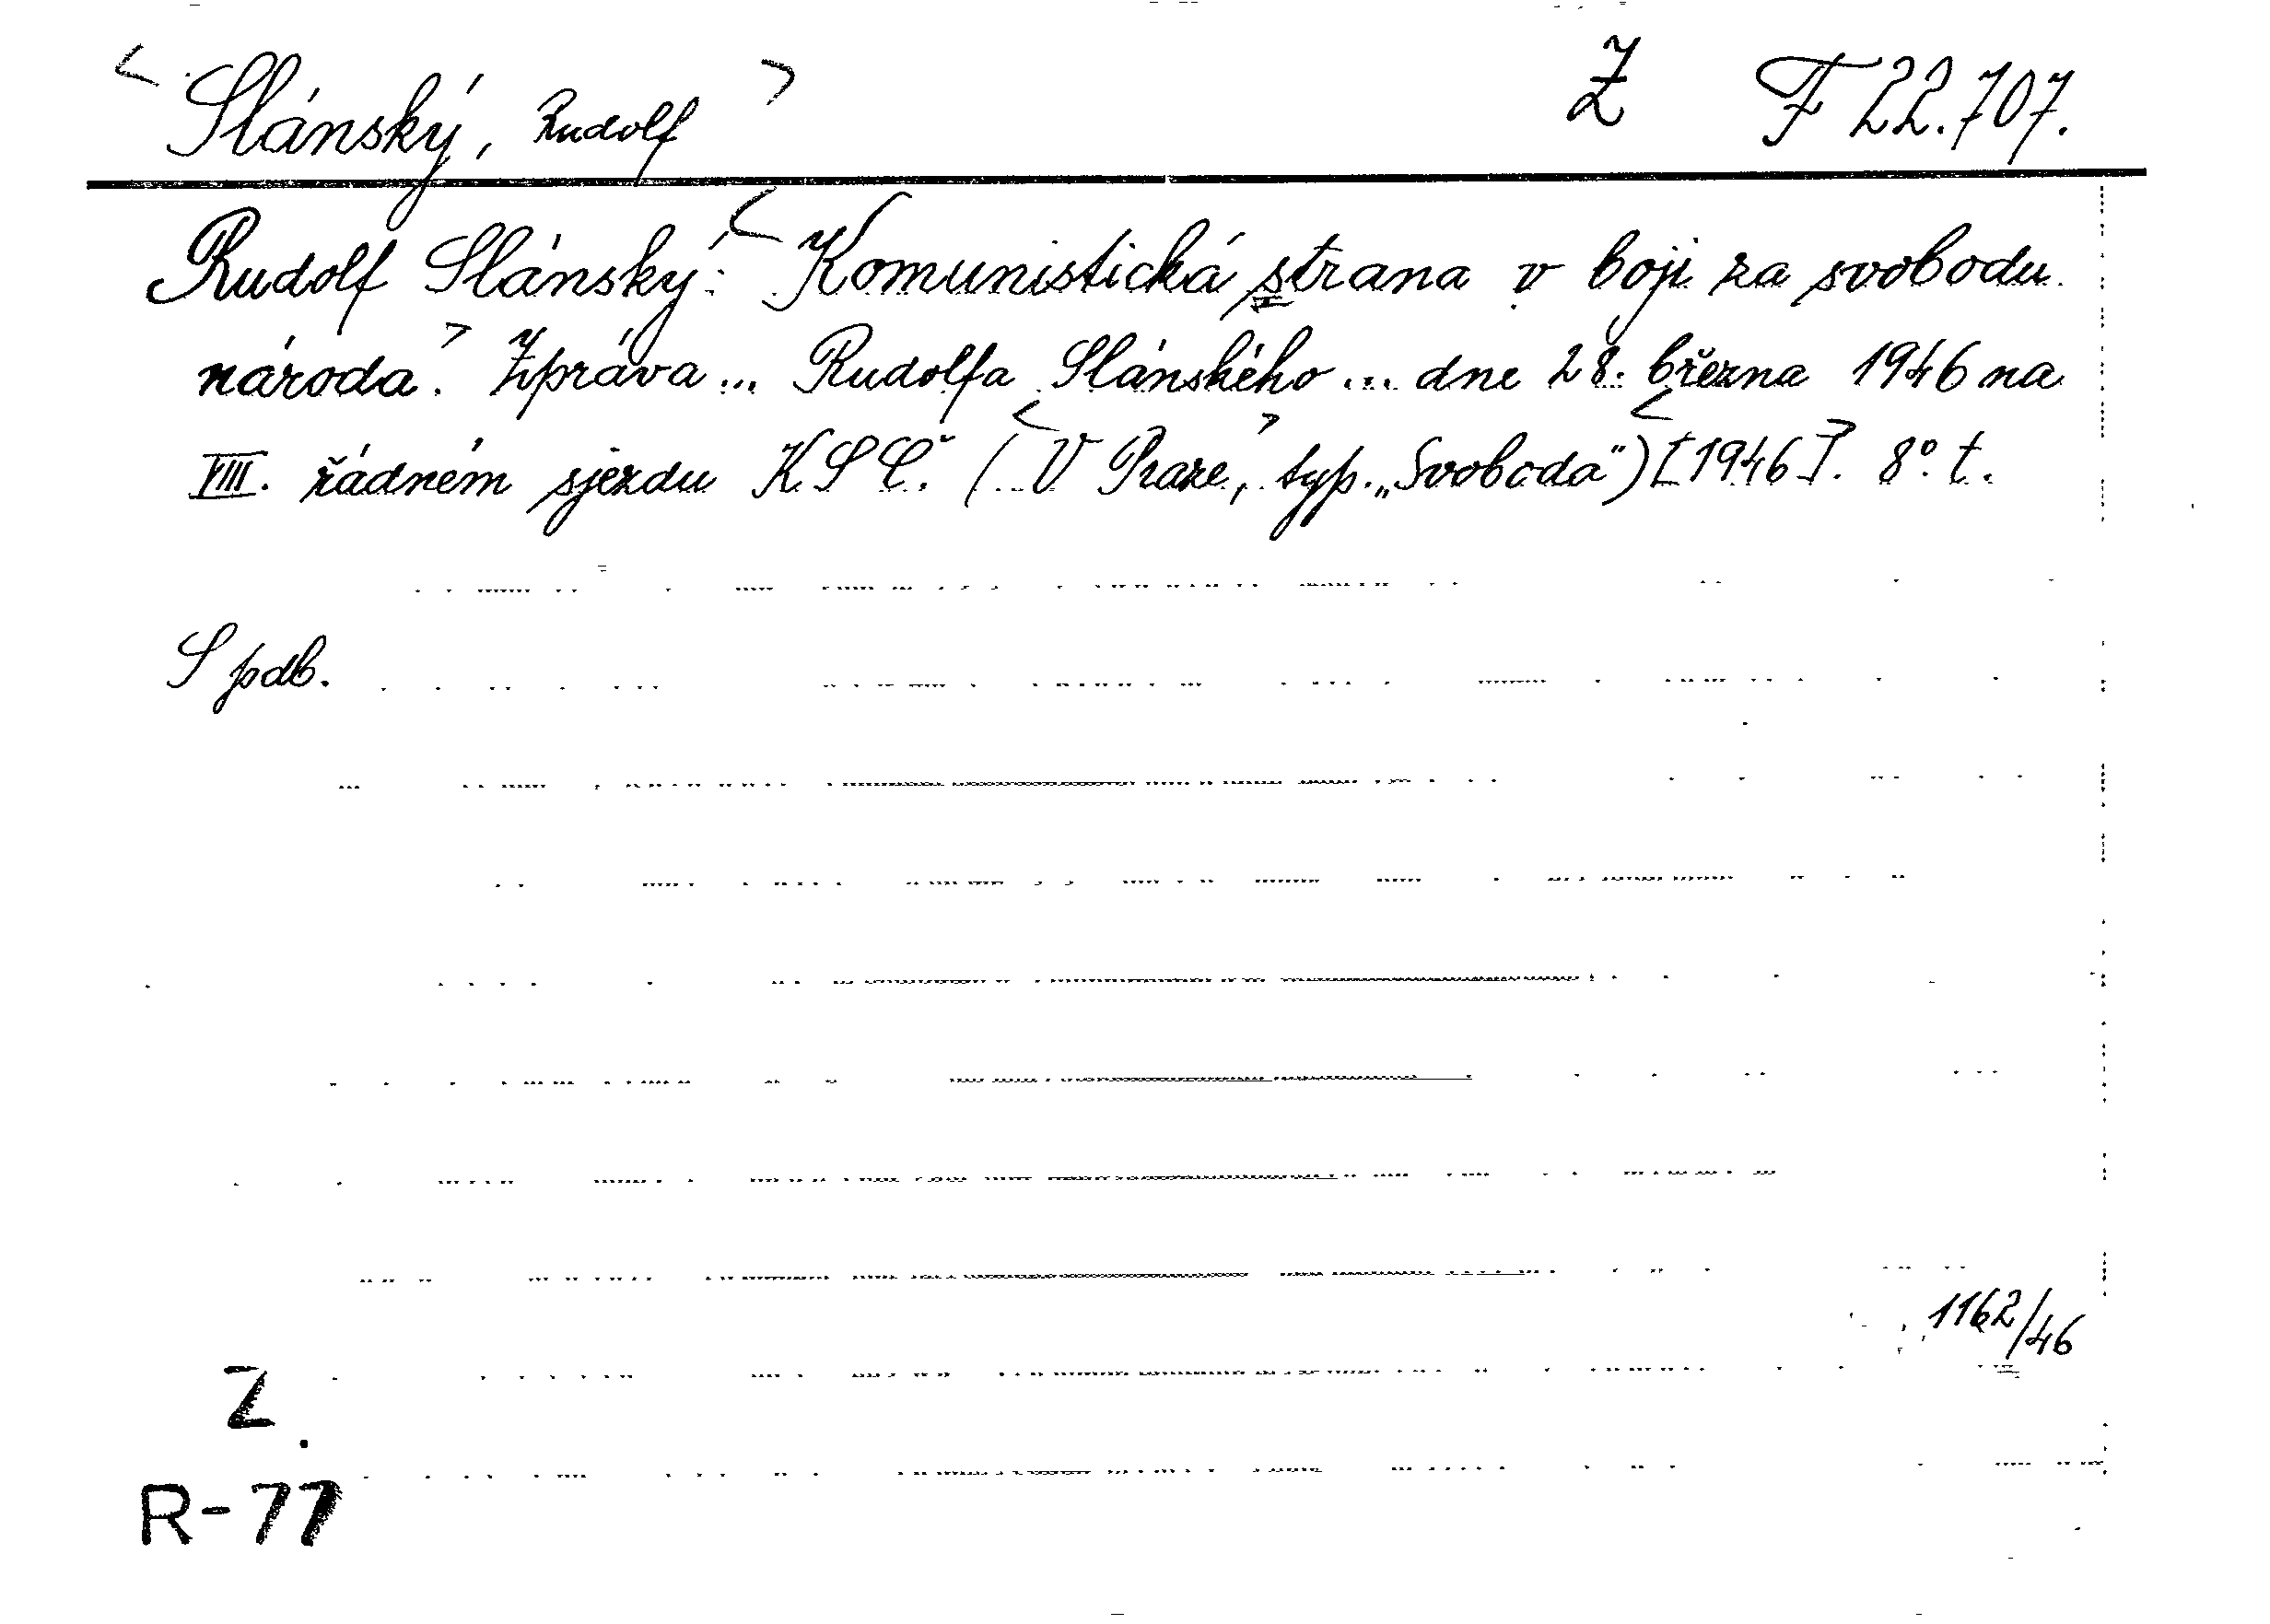 < Slánský, Rudolf > Z F 22.707.
Rudolf Slánský: < Komunistická strana v boji za svobodu
národa. > Zpráva ... Rudolfa Slánského ... dne 28. března 1946 na
VIII. řádném sjezdu KSČ. (< V Praze, > typ. „Svoboda“) < [1946]. > 8°. t.
S pdb.
1162/46
Z.
R-77